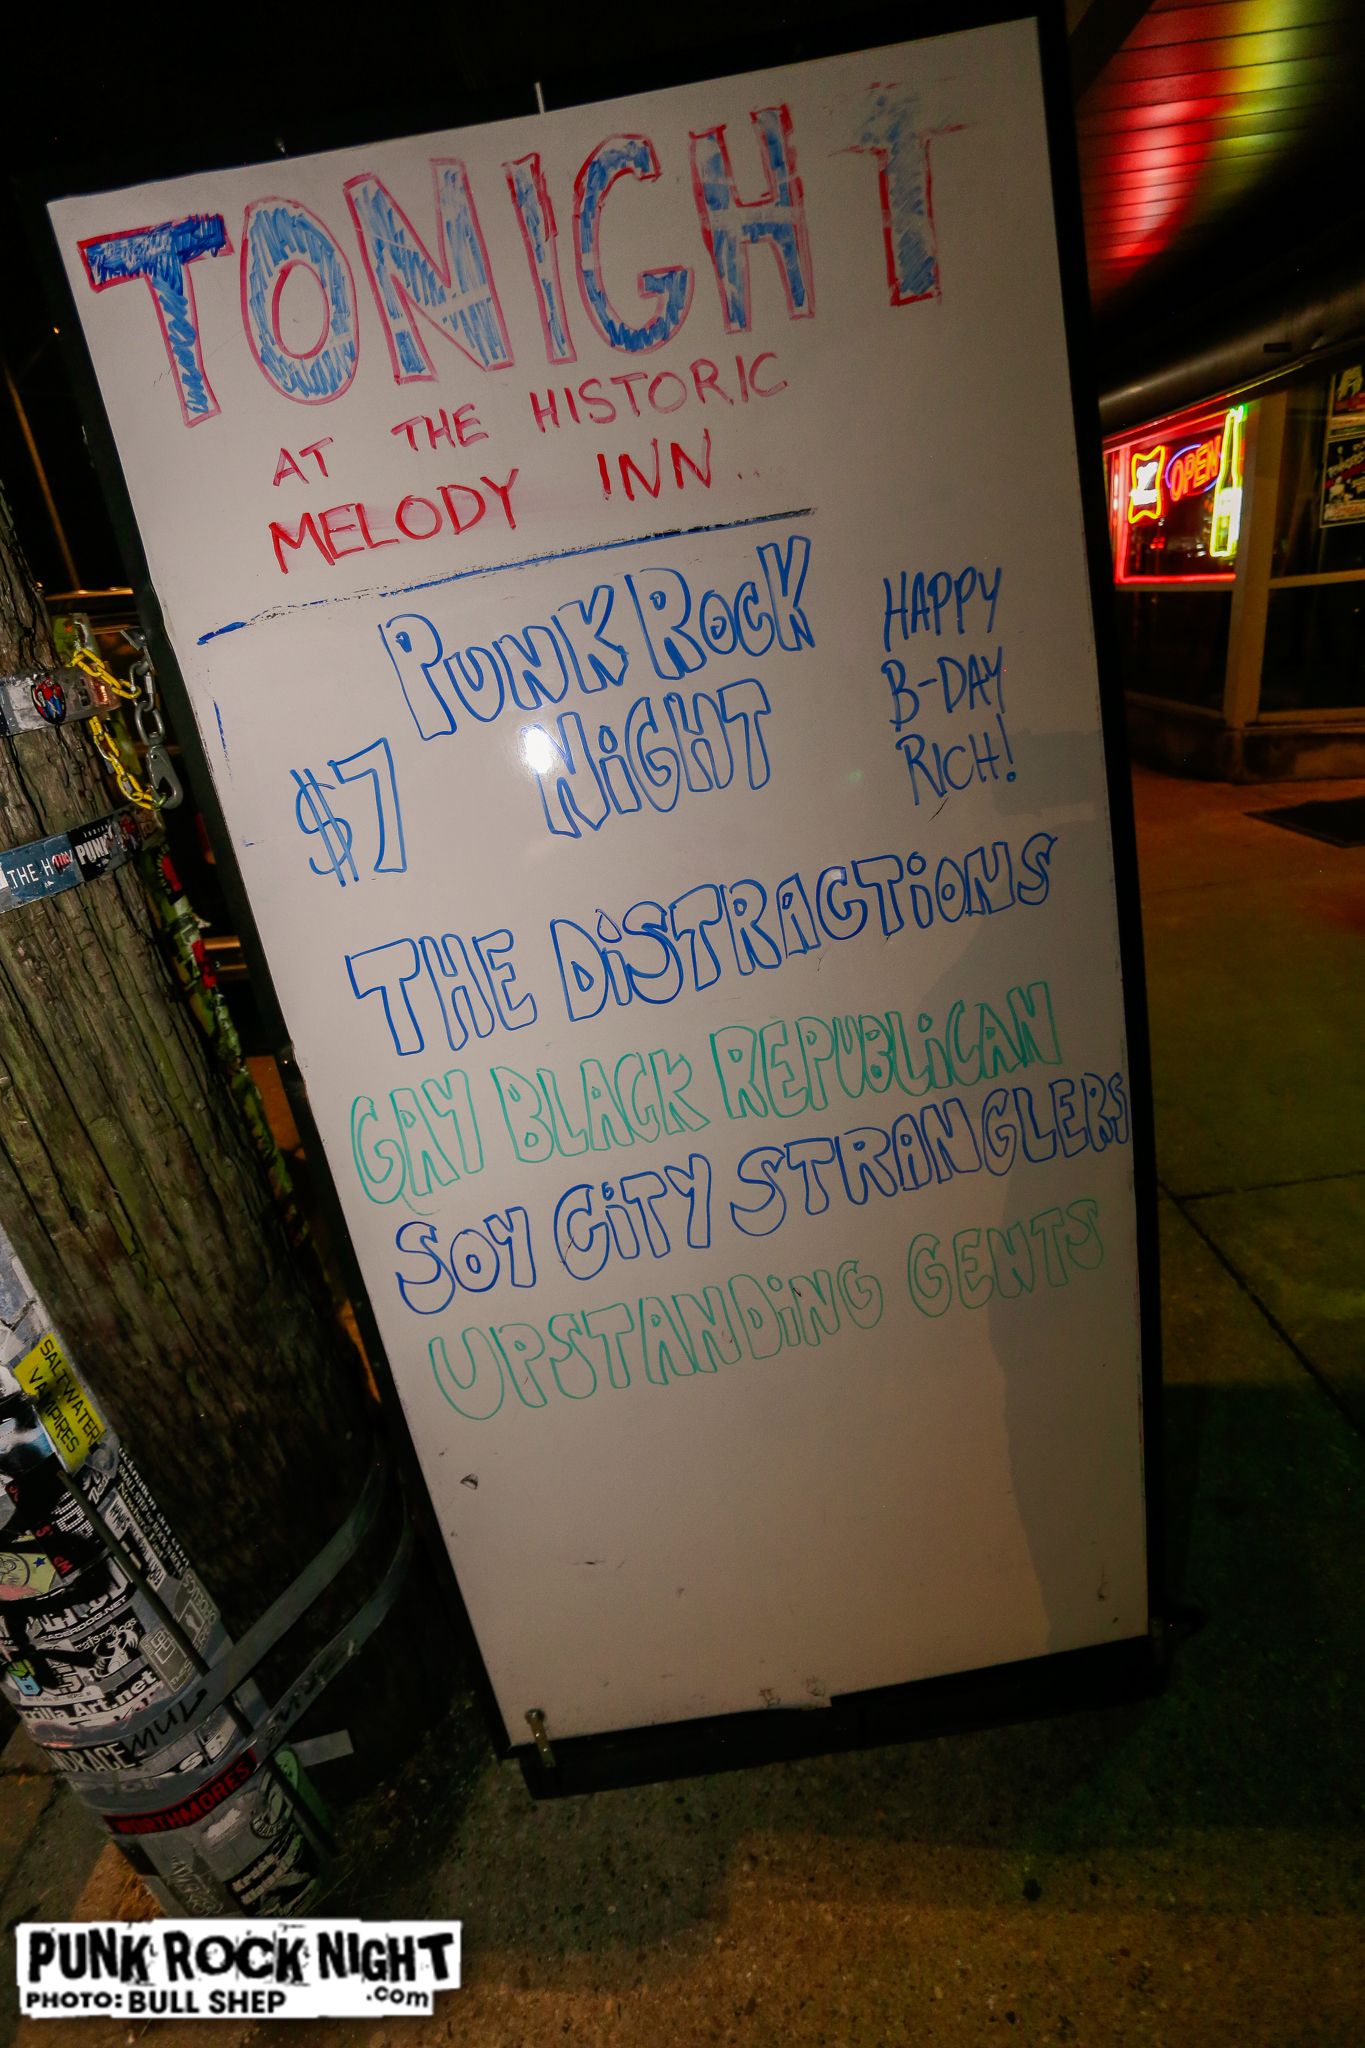 TONIGHT
AT THE HISTORIC
MELODY INN..
PUNK ROCK
NiGHT
$7
HAPPY
B-DAY
RICH!
THE DiSTRACTiONS
GAY BLACK REPUBLiCAN
SOY CiTY STRANGLERS
UPSTANDiNG GENTS
OPEN
THE H
PUNK
SALTWATER
VAMPIRES
Art.net
MUL
NORTHMORES
PUNK ROCK NIGHT
.com
PHOTO: BULL SHEP